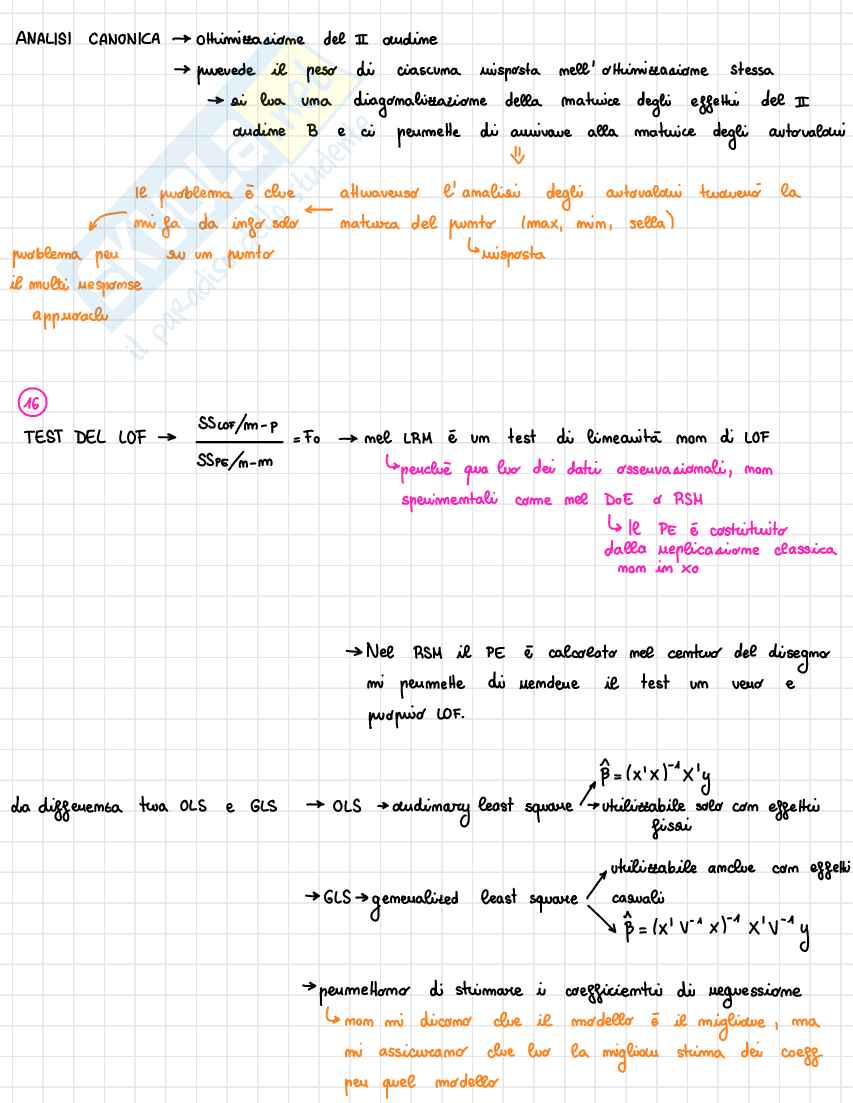 ANALISI CANONICA → ottimizzazione del II ordine
→ prevede il peso di ciascuna risposta nell'ottimizzazione stessa
→ si ha una diagonalizzazione della matrice degli effetti del II
ordine B e ci permette di arrivare alla matrice degli autovalori
⇓
attraverso l'analisi degli autovalori troverò la
natura del punto (max, min, sella)
↳ risposta
← Il problema è che
mi fa da info solo
su un punto
problema per
il multi response
approach
SKUOLA.net
il paradiso dello studente
16
TEST DEL LOF → SSLOF/m-p / SSPE/n-m = F0 → nel LRM è un test di linearità non di LOF
↳ perché qua ho dei dati osservazionali, non
sperimentali come nel DoE o RSM
↳ Il PE è costituito
dalla replicazione classica
non in x0
→ Nel RSM il PE è calcolato nel centro del disegno
mi permette di rendere il test un vero e
proprio LOF.
β̂ = (x'x)⁻¹ x'y
La differenza tra OLS e GLS → OLS → ordinary least square → utilizzabile solo con effetti
fissi
utilizzabile anche con effetti
→ GLS → generalized least square casuali
β̂ = (x' V⁻¹ x)⁻¹ x' V⁻¹ y
→ permettono di stimare i coefficienti di regressione
↳ non mi dicono che il modello è il migliore, ma
mi assicurano che ho la miglior stima dei coeff
per quel modello